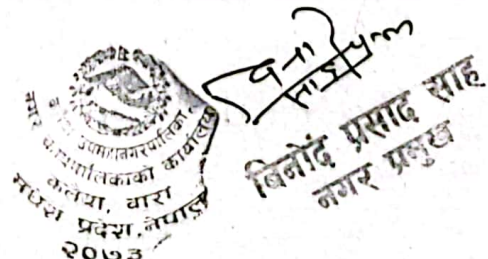 उपमहानगरपालिका
नगर कार्यपालिकाको कार्यालय
कलैया, बारा
मधेश प्रदेश, नेपाल
२०७३
बिनोद प्रसाद साह
नगर प्रमुख